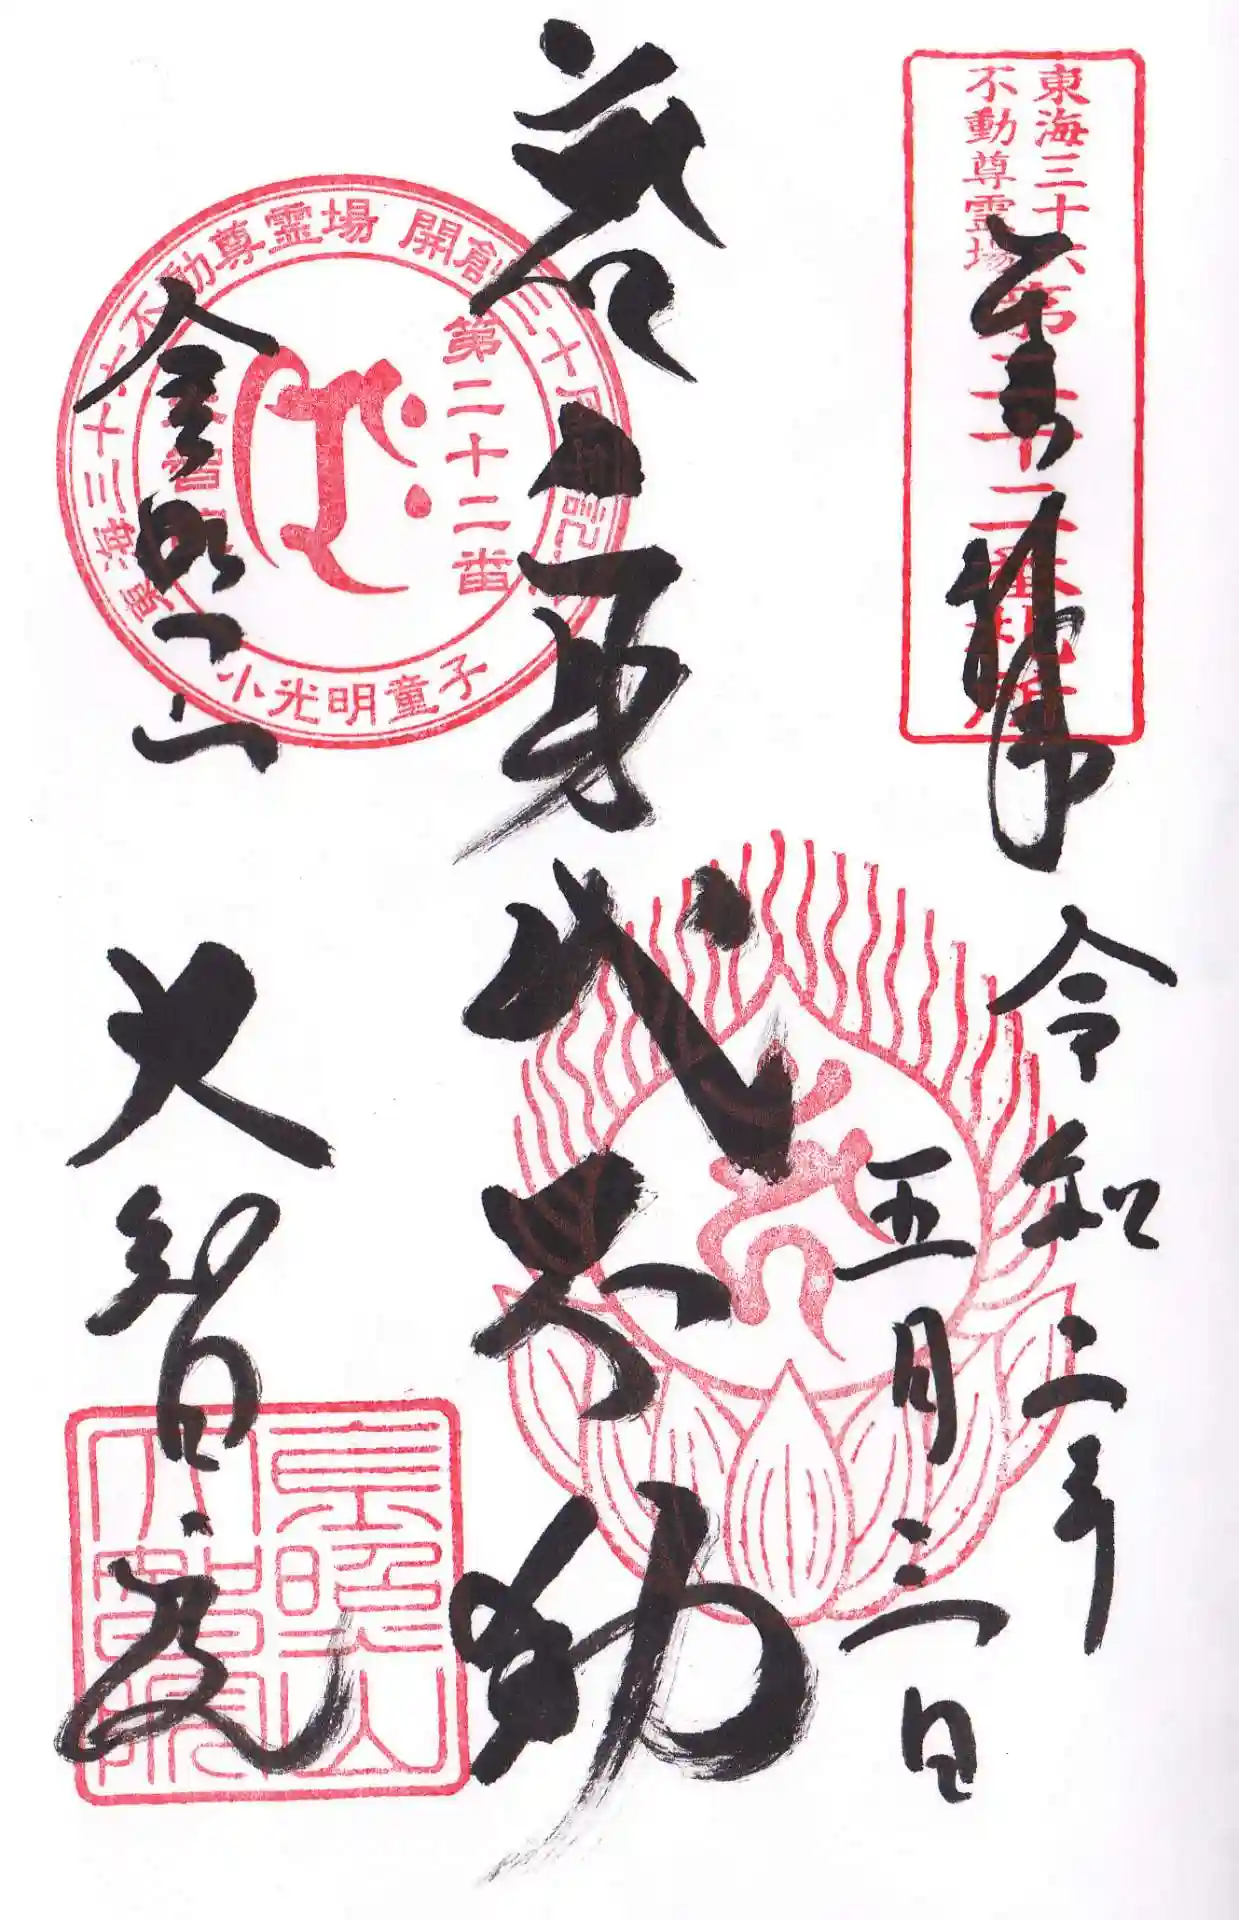 東海三十六
不動尊霊場
第二十二番札所
奉拝
令和二年
五月三日
身代不動
金照山
大智院
東海三十六不動尊霊場 開創三十周年記念
第二十二番
大智院
小光明童子
金照山
大智院